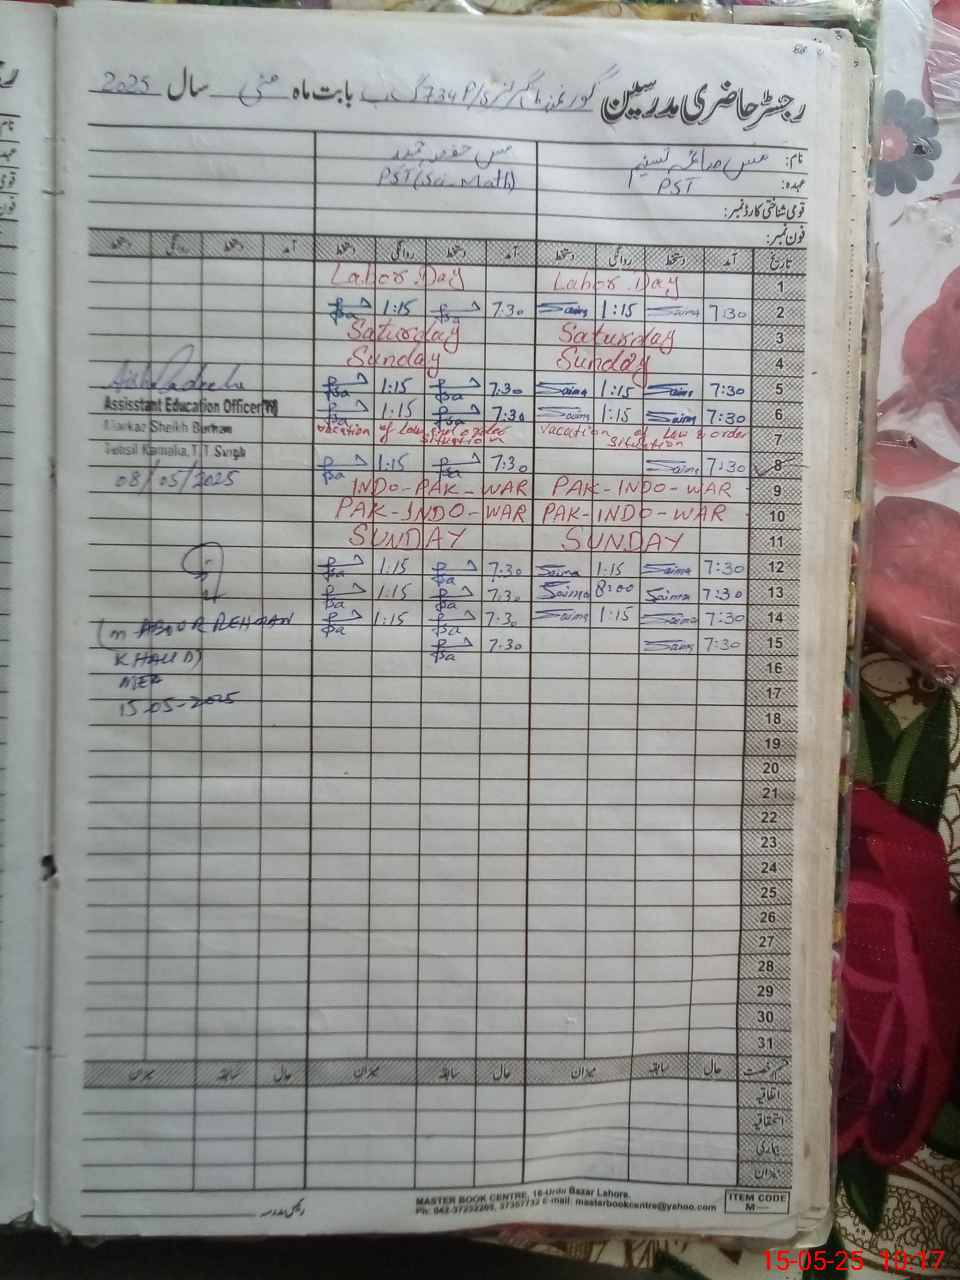 رجسٹر حاضری مدرسین گورنمنٹ گرلز P/S 734 گ ب بابت ماہ مئی سال 2025
نام: مس صائمہ تسنیم مس
عہدہ: PST PST (Sci-Math)
قومی شناختی کارڈ نمبر:
فون نمبر:
تاریخ آمد دستخط روانگی دستخط آمد دستخط روانگی دستخط آمد دستخط روانگی دستخط
Labor Day Labor Day 1
1:15 7:30 Saima 1:15 Saima 7:30 2
Saturday Saturday 3
Sunday Sunday 4
1:15 7:30 Saima 1:15 Saima 7:30 5
Assisstant Education Officer(W) 1:15 7:30 Saima 1:15 Saima 7:30 6
Markaz Sheikh Burhan vacation of Law and order situation vacation of Law & order situation 7
Tehsil Kamalia, T.T. Singh 1:15 7:30 Saima 7:30 8
08/05/2025 INDO-PAK-WAR PAK-INDO-WAR 9
PAK-INDO-WAR PAK-INDO-WAR 10
SUNDAY SUNDAY 11
1:15 7:30 Saima 1:15 Saima 7:30 12
1:15 7:30 Saima 8:00 Saima 7:30 13
(M ABDUR REHMAN 1:15 7:30 Saima 1:15 Saima 7:30 14
KHALID) 7:30 Saima 7:30 15
MEA 16
15-05-2025 17
18
19
20
21
22
23
24
25
26
27
28
29
30
31
قسم رخصت حال سابقہ میزان حال سابقہ میزان حال سابقہ میزان
اتفاقیہ
استحقاقیہ
بیماری
میزان
رئیس مدرسہ
MASTER BOOK CENTRE, 16-Urdu Bazar Lahore.
Ph: 042-37232205, 37357732 E-mail: masterbookcentre@yahoo.com
ITEM CODE
M—
15-05-25 10:17